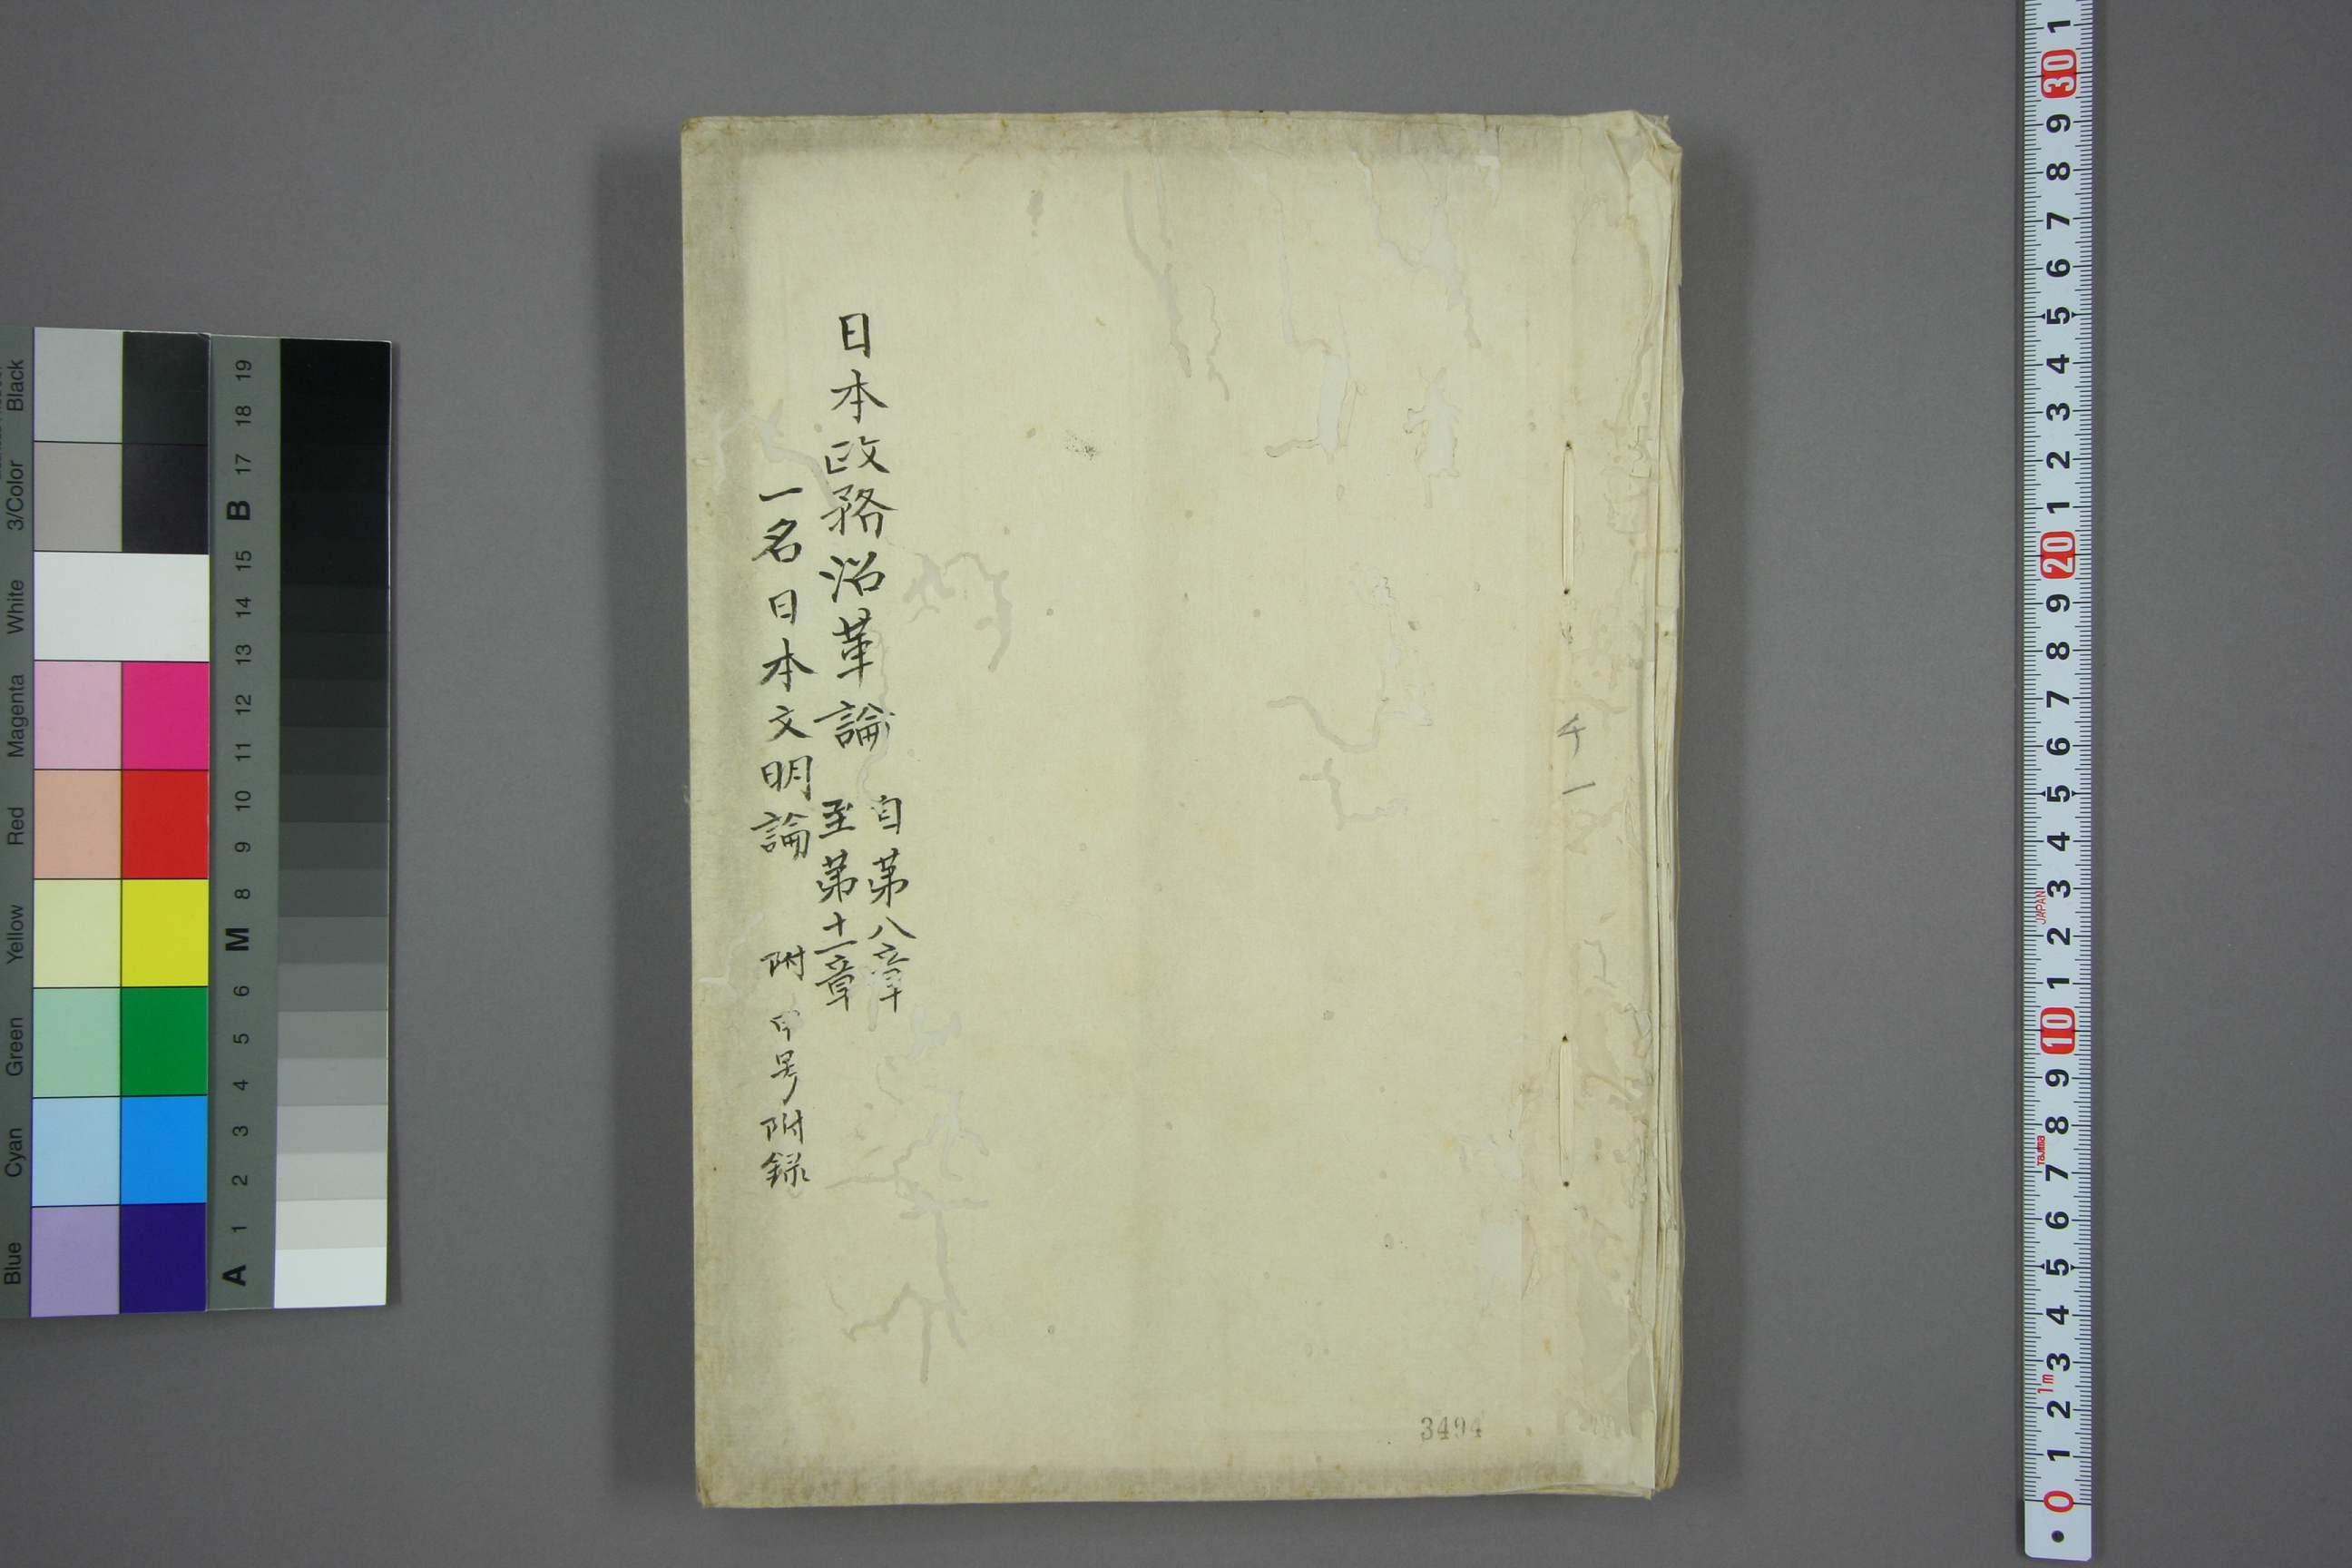 日本政務沿革論
自第八章
至第十二章
一名日本文明論
附 甲号附録
3494
Black
3/Color
White
Magenta
Red
Yellow
Green
Cyan
Blue
19
18
17
B
15
14
13
12
11
10
9
8
M
6
5
4
3
2
1
A
1
30
9
8
7
6
5
4
3
2
1
20
9
8
7
6
5
4
3
JAPAN
2
1
10
9
8
Tajima
7
6
5
4
3
1m
2
1
0